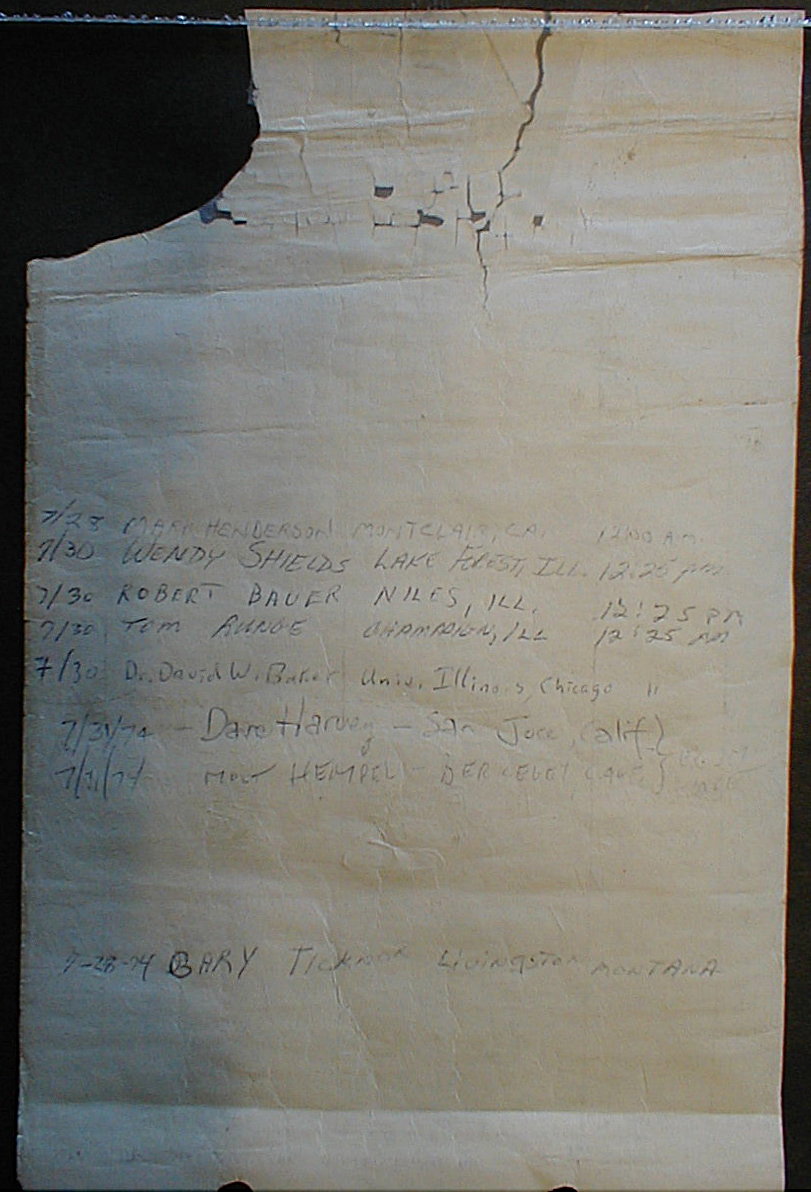 7/28 MARK HENDERSON MONTCLAIR, CA. 12:00 A.M.
7/30 WENDY SHIELDS LAKE FOREST, ILL. 12:25 pm.
7/30 ROBERT BAUER NILES, ILL. 12:25 PM
7/30 TOM RUNGE CHAMPAIGN, ILL 12:25 PM
7/30 Dr. David W. Baker Univ. Illinois, Chicago "
7/31/74 - Dave Harvey - San Jose, Calif. }
7/31/74 HEMPEL - BERKELEY }
7-28-74 GARY TICKNOR LIVINGSTON MONTANA